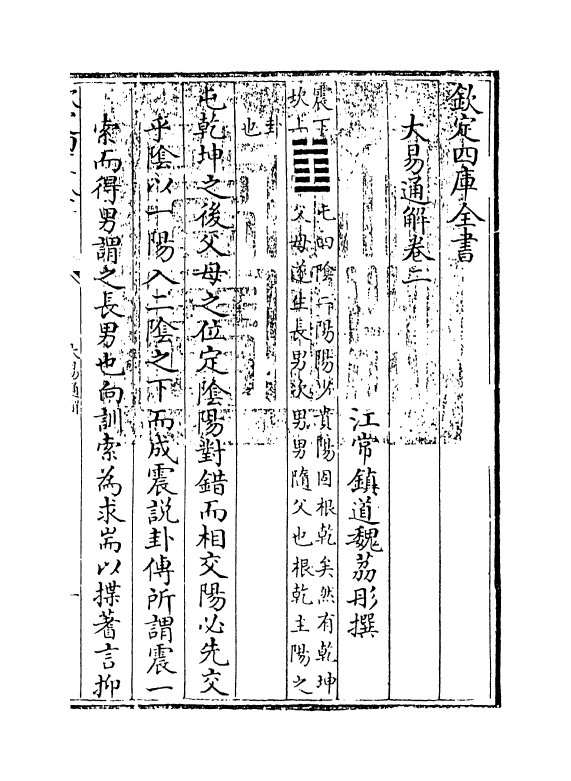 欽定四庫全書
大易通解卷二
江常鎮道魏荔彤撰
震下
坎上
屯四陰二陽陽少貴陽固根乾矣然有乾坤
父母遂生長男次男男隨父也根乾主陽之
卦
也
屯乾坤之後父母之位定陰陽對錯而相交陽必先交
乎陰以一陽入二陰之下而成震說卦傳所謂震一
索而得男謂之長男也向訓索為求耑以揲蓍言抑